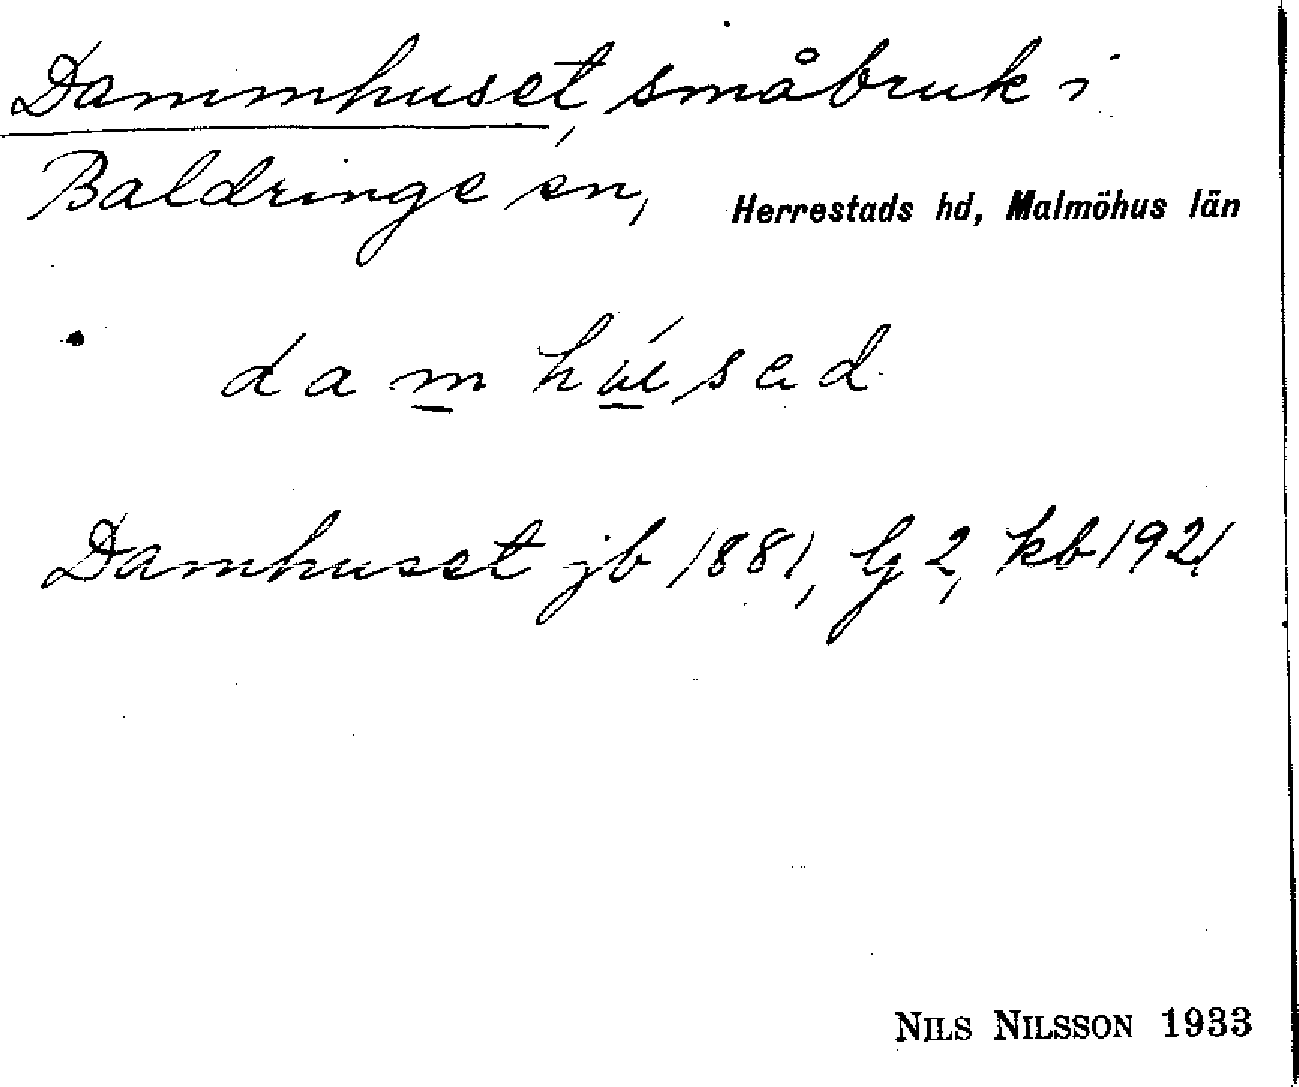 Dammhuset, småbruk i
Baldringe sn, Herrestads hd, Malmöhus län
damhúsed
Damhuset jb 1881, Gj 2, kb 1921
NILS NILSSON 1933